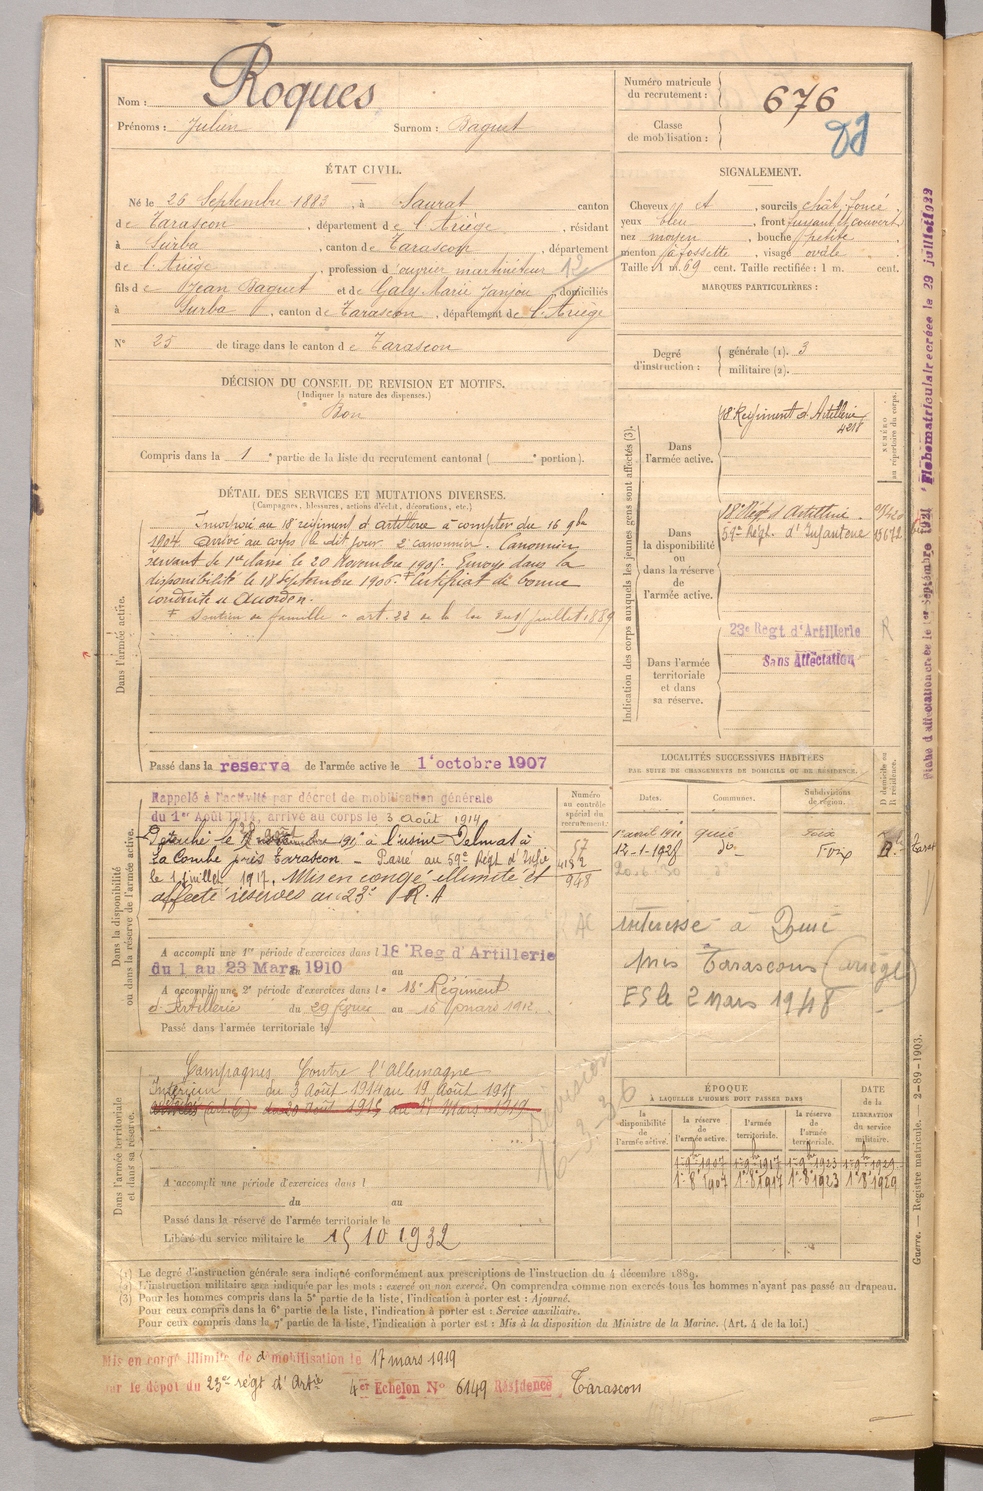 Nom : Roques
Prénoms : Julien Surnom : Baguet
Numéro matricule du recrutement : 676
Classe de mobilisation :
ÉTAT CIVIL.
Né le 26 Septembre 1883, à Saurat canton
de Tarascon, département de l'Ariège, résidant
à Surba, canton de Tarascon, département
de l'Ariège, profession d'ouvrier martineteur 12
fils de Jean Baguet et de Galy Marie Janjou, domiciliés
à Surba, canton de Tarascon, département de l'Ariège
N° 25 de tirage dans le canton de Tarascon
SIGNALEMENT.
Cheveux et, sourcils chât. foncé
yeux bleu, front fuyant et couvert
nez moyen, bouche petite
menton à fossette, visage ovale
Taille 1 m. 69 cent. Taille rectifiée : 1 m. cent.
MARQUES PARTICULIÈRES :
Degré d'instruction : générale (1). 3
militaire (2).
DÉCISION DU CONSEIL DE REVISION ET MOTIFS.
(Indiquer la nature des dispenses.)
Bon
Compris dans la 1e partie de la liste du recrutement cantonal ( e portion).
DÉTAIL DES SERVICES ET MUTATIONS DIVERSES.
(Campagnes, blessures, actions d'éclat, décorations, etc.)
Dans l'armée active.
Incorporé au 18e régiment d'artillerie à compter du 16 9bre
1904. Arrivé au corps le dit jour. 2e canonnier. Canonnier
servant de 1re classe le 20 Novembre 1905. Envoyé dans la
disponibilité le 18 septembre 1906. Certificat de bonne
conduite accordé.
Soutien de famille - art. 22 de la loi du 15 juillet 1889
Passé dans la reserve de l'armée active le 1 octobre 1907
Indication des corps auxquels les jeunes gens sont affectés (3).
NUMÉRO au répertoire du corps.
Dans l'armée active.
18e Régiment d'Artillerie
4218
Dans la disponibilité ou dans la réserve de l'armée active.
18e Régt d'Artillerie
59e Régt. d'Infanterie 15672
Dans l'armée territoriale et dans sa réserve.
23e Régt d'Artillerie
Sans Affectation
R
Dans la disponibilité ou dans la réserve de l'armée active.
Numéro au contrôle spécial du recrutement.
Rappelé à l'activité par décret de mobilisation générale
du 1er Août 1914, arrivé au corps le 3 août 1914
Détaché le août 191 à l'usine Delmas à
La Combe près Tarascon - Passé au 59e Régt d'Infie
le 1 juillet 1917. Mis en congé illimité et
affecté réserves au 23e R.A
948
A accompli une 1re période d'exercices dans l 18e Reg d'Artillerie
du 1 au 23 Mars 1910 au
A accompli une 2e période d'exercices dans le 18e Régiment
d'Artillerie du 29 février au 16 mars 1912.
Passé dans l'armée territoriale le
LOCALITÉS SUCCESSIVES HABITÉES
PAR SUITE DE CHANGEMENTS DE DOMICILE OU DE RÉSIDENCE.
Dates. Communes. Subdivisions de région. D domicile ou R résidence.
1er avril 1911 Quié Foix
12-1-1928 do Foix
20.6.30 do
intéressé à Quié
près Tarascon (ariège)
ES le 2 mars 1948
Dans l'armée territoriale et dans sa réserve.
Campagnes Contre l'Allemagne
Intérieur du 3 août 1914 au 19 août 1915
au 17 Mars 1919
A accompli une période d'exercices dans l
du au
Passé dans la réserve de l'armée territoriale le
Libéré du service militaire le 15 10 1932
ÉPOQUE
À LAQUELLE L'HOMME DOIT PASSER DANS
la disponibilité de l'armée active. la réserve de l'armée active. l'armée territoriale. la réserve de l'armée territoriale. DATE de la LIBÉRATION du service militaire.
1er 9bre 1907 1er 9bre 1917 1er 9bre 1923 1er 9bre 1929
1er 8e 1907 1er 8e 1917 1er 8e 1923 1er 8e 1929
(1) Le degré d'instruction générale sera indiqué conformément aux prescriptions de l'instruction du 4 décembre 1889.
(2) L'instruction militaire sera indiquée par les mots : exercé ou non exercé. On comprendra comme non exercés tous les hommes n'ayant pas passé au drapeau.
(3) Pour les hommes compris dans la 5e partie de la liste, l'indication à porter est : Ajourné.
Pour ceux compris dans la 6e partie de la liste, l'indication à porter est : Service auxiliaire.
Pour ceux compris dans la 7e partie de la liste, l'indication à porter est : Mis à la disposition du Ministre de la Marine. (Art. 4 de la loi.)
Mis en congé illimité de démobilisation le 17 mars 1919
par le dépot du 23e régt d'Artie 4er Echelon N° 6149 Résidence Tarascon
Guerre. — Registre matricule. 2-89-1903.
Fiche d'affectation créée le 1er Septembre 1921 Fiche matriculaire créée le 29 juillet 1929